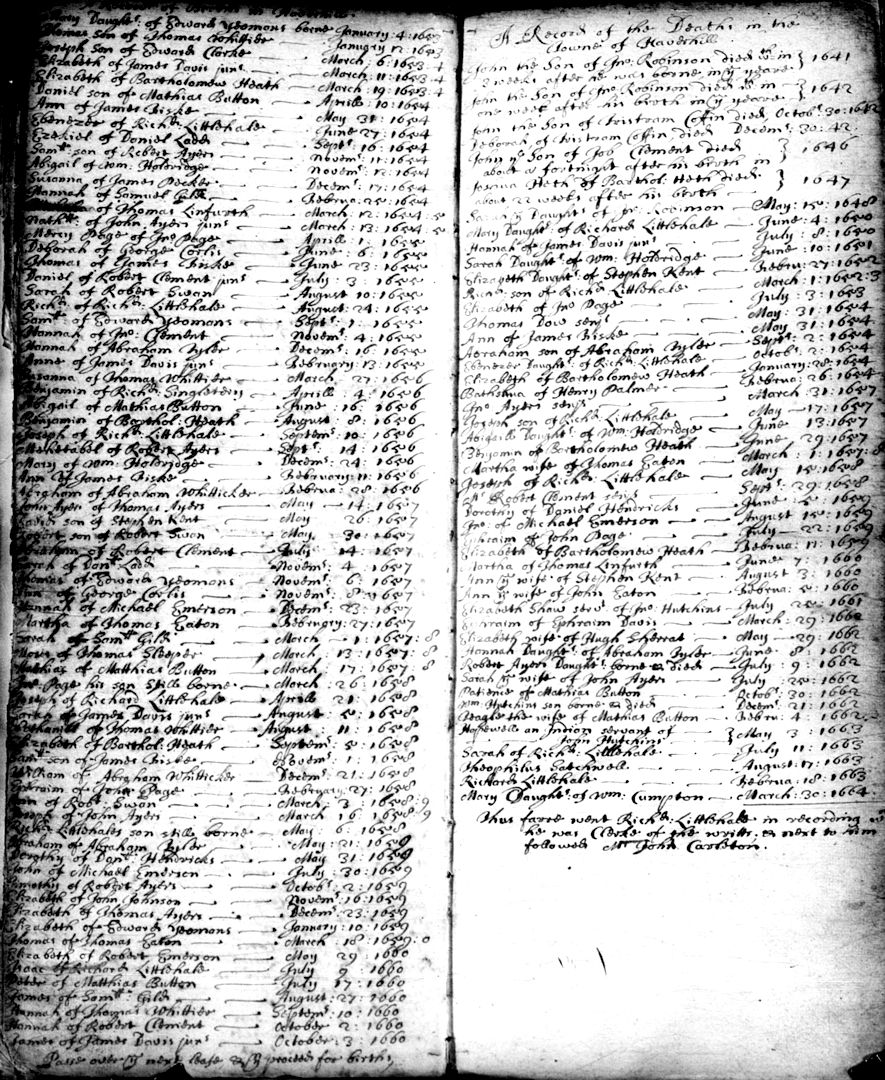 Mary Daughtr. of Edward Yeomans borne January: 4: 1653
Thomas son of Thomas Whittier January 12: 1653
Joseph Son of Edward Clarke March: 6: 1653:4
Elizabeth of James Davis junr. March: 11: 1653:4
Elizabeth of Bartholomew Heath March: 19: 1653:4
Daniel son of Mathias Button Aprill: 10: 1654
Ann of James Fiske May 31: 1654
Ebenezer of Richd: Littlehale June 27: 1654
Ezekiel of Daniel Ladd Septr: 16: 1654
Samll son of Robert Ayers Novemr: 11: 1654
Abigail of Wm: Holdridge Novemr: 12: 1654
Susanna of James Pecker Decemr: 17: 1654
Hannah of Samuel Gild Februa: 25: 1654
of Thomas Linfurth March: 12: 1654:5
Nathll. of John Ayers junr March: 13: 1654:5
Mercy Page of Jno Page Aprill: 1: 1655
Deborah of George Corlis June: 6: 1655
Thomas of James Fiske June 23: 1655
Daniel of Robert Clement junr July: 3: 1655
Sarah of Robert Swan August 10: 1655
Richd of Richd: Littlehale August 24: 1655
Samll of Edward Yeomans Septr: 1: 1655
Hannah of Jno: Clement Novemr: 4: 1655
Hannah of Abraham Tyler Decemr: 16: 1655
Anne of James Davis junr February: 13: 1655
Susanna of Thomas Whittier March: 27: 1656
Benjamin of Richd: Singletery Aprill: 4: 1656
Abigail of Mathias Button June: 16: 1656
Benjamin of Barthol: Heath August: 8: 1656
Joseph of Richd: Littlehale Septem: 10: 1656
Mehetabel of Robert Ayers Septr: 14: 1656
Mary of Wm: Holdridge Decemr: 24: 1656
Ann of James Fiske February: 11: 1656
Abraham of Abraham Whitticker Februa: 28: 1656
John Ayer of Thomas Ayers May 14: 1657
son of Stephen Kent May 26: 1657
Robert son of Robert Swan May 30: 1657
of Robert Clement July: 14: 1657
Sarah of Danl Ladd Novemr: 4: 1657
Thomas of Edward Yeomans Novemr: 6: 1657
of George Corlis Novemr: 8: 1657
Hannah of Michael Emerson Decemr: 23: 1657
Martha of Thomas Eaton February: 27: 1657
Sarah of Samll: Gild March: 1: 1657:8
of Thomas Sleeper March: 13: 1657:8
Mathias of Matthias Button March: 17: 1657:8
Jno: Page his son still borne March: 26: 1658
Joseph of Richard Littlehale Aprill: 21: 1658
of James Davis junr August: 5: 1658
Nathaniel of Thomas Whittier August: 11: 1658
Elizabeth of Barthol: Heath Septemr: 5: 1658
Saml son of James Fiske Novemr: 1: 1658
William of Abraham Whitticker Decemr: 21: 1658
Ephraim of John Page February: 27: 1658
of Robt: Swan March: 3: 1658:9
Joseph of John Ayers March 16: 1658:9
Richd: Littlehales son still borne May: 6: 1658
Abraham of Abraham Tyler May: 21: 1659
Dorothy of Danl: Hendricks May 31: 1659
John of Michael Emerson July: 30: 1659
Timothy of Robert Ayers Octobr: 2: 1659
Elizabeth of John Johnson Novemr: 16: 1659
Elizabeth of Thomas Ayers Decemr: 23: 1659
Elizabeth of Edward Yeomans January: 10: 1659
Thomas of Thomas Eaton March: 18: 1659:0
Elizabeth of Robert Emerson May 29: 1660
Isaac of Richard Littlehale July 9: 1660
Peter of Matthias Button July 17: 1660
James of Samll: Gild August: 27: 1660
Hannah of Thomas Whittier Septemr: 10: 1660
Hannah of Robert Clement October: 2: 1660
James of James Davis junr October: 3: 1660
Passe over ye next leafe & yy proceed for births
A Record of the Deaths in the
Towne of Haverhill
John the Son of Jno. Robinson died wch in } 1641
3 weeks after he was borne in ye yeare
John the Son of Jno Robinson died wch in } 1642
one week after his birth in ye yeare
John the Son of Tristram Coffin died Octobr: 30: 1642
Deborah of Tristram Coffin died Decemr: 30: 42:
John ye Son of Job Clement died } 1646
about a fortnight after his birth in
Joshua Heth of Barthol: Heth died } 1647
about 22 weeks after his birth
Sarah ye Daughtr of Jno Robinson May: 15: 1648
Mary Daughtr: of Richard Littlehale June: 4: 1650
Hannah of James Davis junr July: 8: 1650
Sarah Daughtr: of Wm: Holdridge June: 10: 1651
Elizabeth Daughtr. of Stephen Kent Februa: 27: 1652
Richd: son of Richd: Littlehale March: 1: 1652:3
Elizabeth of Jno Page July: 3: 1653
Thomas Dow senr May: 31: 1654
Ann of James Fiske May 31: 1654
Abraham son of Abraham Tyler Septr: 2: 1654
Ebenezer Daughtr: of Richd: Littlehale Octobr: 2: 1654
Elizabeth of Bartholomew Heath January: 20: 1654
Bathshua of Henry Palmer Februa: 26: 1654
Jno Ayers senr March 31: 1657
Joseph son of Richd: Littlehale May 17: 1657
Abigaill Daughtr. of Wm: Holdridge June 13: 1657
Benjamin of Bartholomew Heath June: 29: 1657
Martha wife of Thomas Eaton March: 1: 1657:8
Joseph of Richd: Littlehale May 15: 1658
Mr Robert Clement senr Septr: 29: 1658
Dorothy of Daniel Hendricks June: 5: 1659
Jno: of Michael Emerson August 15: 1659
Ephraim of John Page July 22: 1659
Elizabeth of Bartholomew Heath Februa: 17: 1659
Martha of Thomas Linfurth June 7: 1660
Ann ye wife of Stephen Kent August 3: 1660
Ann ye wife of John Eaton Februa: 5: 1660
Elizabeth Shaw servt of Jno: Hutchins July 25: 1661
Ephraim of Ephraim Davis March 29: 1662
Elizabeth wife of Hugh Sherrat May 29: 1662
Hannah Daughtr: of Abraham Tyler June 8: 1662
Robert Ayers Daughtr: borne & died July: 9: 1662
Sarah ye wife of John Ayers July 25: 1662
Patience of Mathias Button Octobr: 30: 1662
Wm Hutchins son borne & died Decemr: 21: 1662
Teagle the wife of Mathias Button Februa: 4: 1662
Hopewell an Indian servant of } May: 3: 1663
John Hutchins
Sarah of Richd: Littlehale July 11: 1663
Theophilus Satchwell August: 17: 1663
Richard Littlehale Februa: 18: 1663
Mary Daughtr: of Wm: Cumpton March: 30: 1664
Thus farre went Richd: Littlehale in recording
he was Clerke of the writts, & next to him
followed Mr John Carleton.